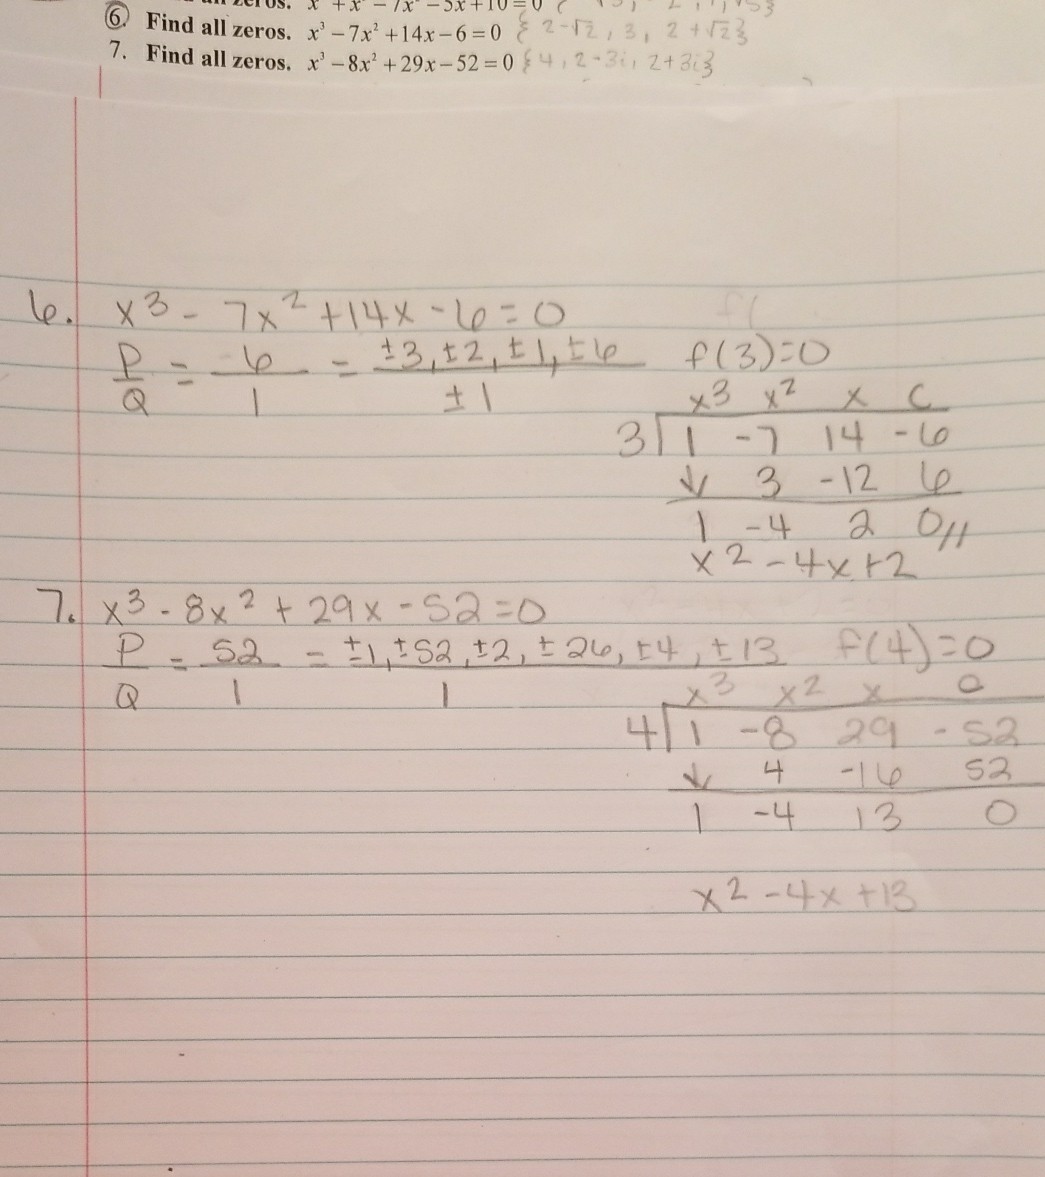 zeros. x³ + x² − 7x² − 5x + 10 = 0 {
6. Find all zeros. x³ − 7x² + 14x − 6 = 0 { 2-√2, 3, 2+√2}
7. Find all zeros. x³ − 8x² + 29x − 52 = 0 {4, 2-3i, 2+3i}
6. x3 - 7x2 + 14x - 6 = 0 f(
P/Q = 6/1 = ±3, ±2, ±1, ±6 / ±1 f(3)=0
x3 x2 x C
3 1 -7 14 -6
↓ 3 -12 6
1 -4 2 0//
x2 - 4x + 2
7. x3 - 8x2 + 29x - 52 = 0
P/Q = 52/1 = ±1, ±52, ±2, ±26, ±4, ±13 / 1 f(4)=0
x3 x2 x c
4 1 -8 29 -52
↓ 4 -16 52
1 -4 13 0
x2 - 4x + 13